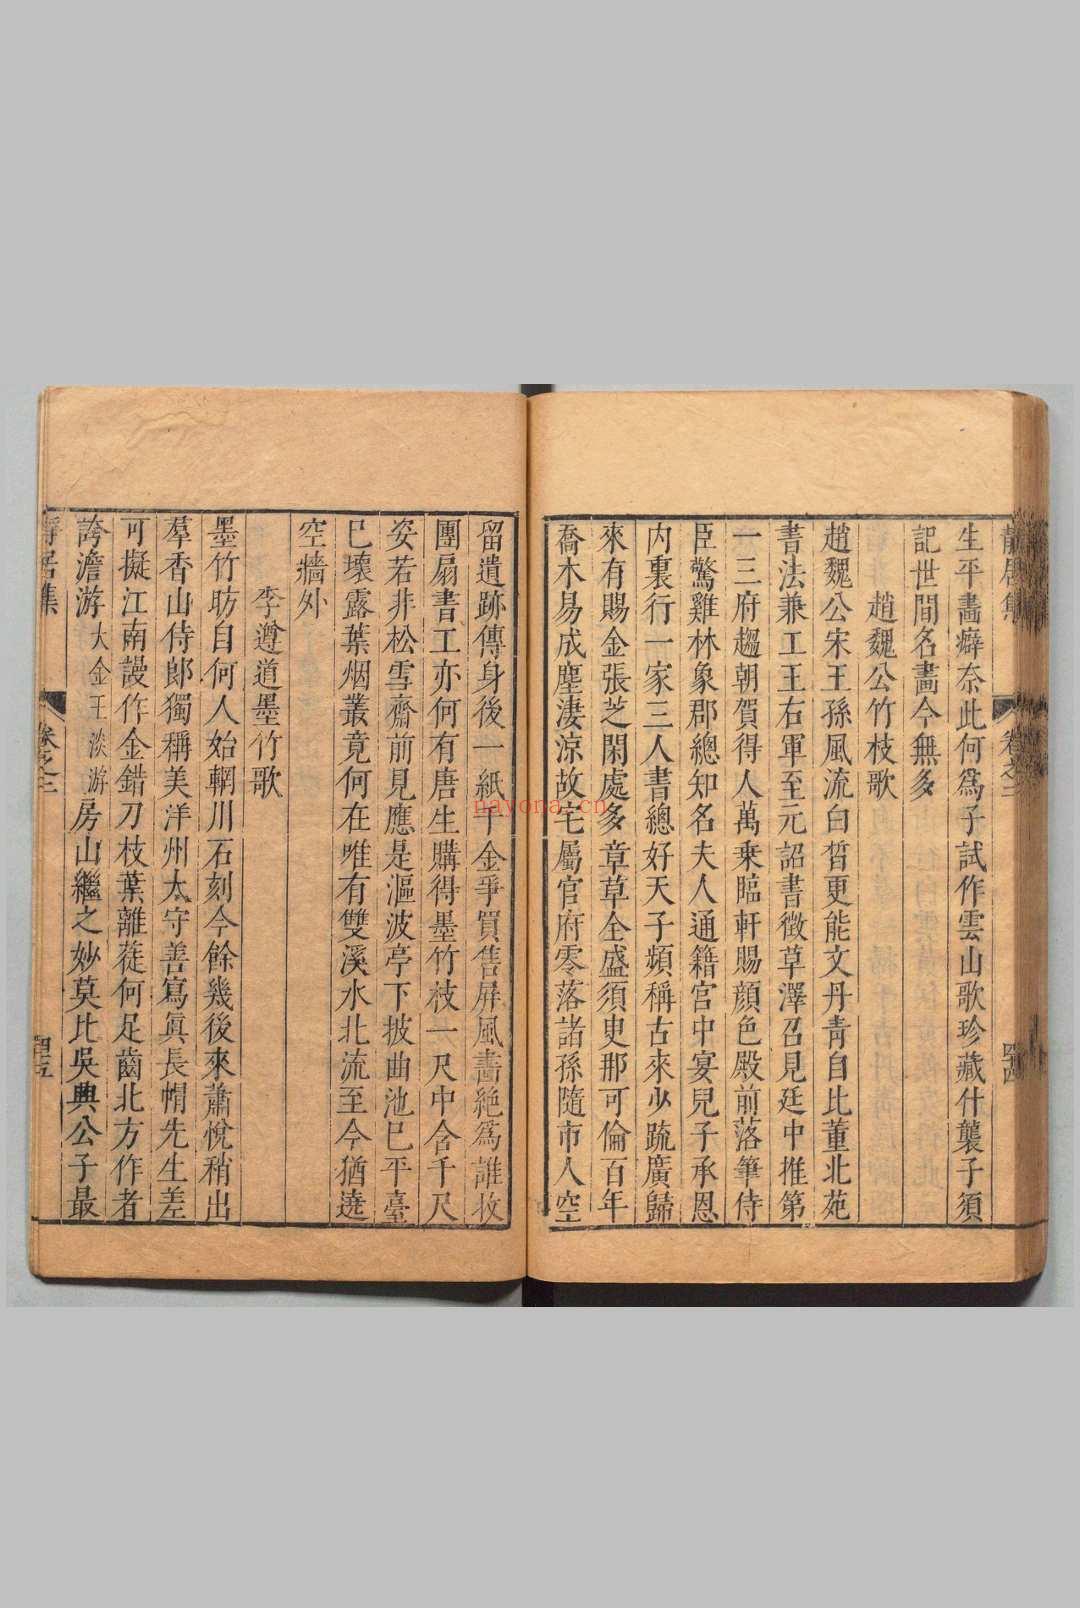 靜居集 卷之三 四四
生平畵癖奈此何爲子試作雲山歌珍藏什襲子須
記世間名畵今無多
趙魏公竹枝歌
趙魏公宋王孫風流白皙更能文丹青自比董北苑
書法兼工王右軍至元詔書徵草澤召見廷中推第
一三府趨朝賀得人萬乗臨軒賜顔色殿前落筆侍
臣驚雞林象郡總知名夫人通籍宫中宴兒子承恩
内裏行一家三人書總好天子頻稱古來少疏廣歸
來有賜金張芝閑處多章草全盛須臾那可倫百年
喬木易成塵淒涼故宅屬官府零落諸孫隨市人空
留遺跡傳身後一紙千金爭買售屏風畵絶爲誰收
團扇書工亦何有唐生購得墨竹枝一尺中含千尺
姿若非松雪齋前見應是漚波亭下披曲池巳平臺
巳壞露葉烟叢竟何在唯有雙溪水北流至今猶遶
空牆外
李遵道墨竹歌
墨竹昉自何人始輞川石刻今餘幾後來蕭悅稍出
羣香山侍郎獨稱美洋州太守善寫眞長帽先生差
可擬江南謾作金錯刀枝葉離蓰何足齒北方作者
誇澹游大金王淡游房山繼之妙莫比吳興公子最
靜居集 卷之三 四五
nayona.cn